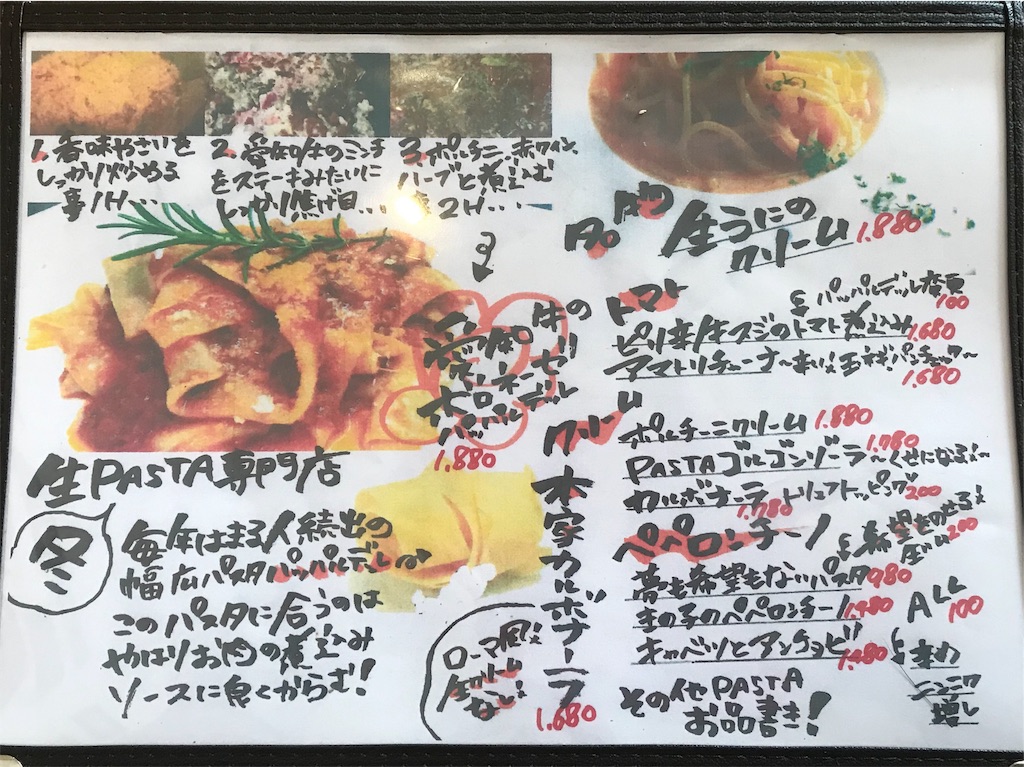 1. 香味やさいを
しっかり炒める
事1H...
2. 愛知牛のミンチ
をステーキみたいに
しっかり焦げ目...
3. ポルチーニ、赤ワイン、
ハーブと煮込む
事2H...
牛の
愛風
ボロネーゼ
パッパルデッレ
1.880
生PASTA専門店
冬
毎年はまる人続出の
幅広パスタパッパルデッレ
このパスタに合うのは
やはりお肉の煮込み
ソースに良くからむ!
本家カルボナーラ
ローマ風!
生クリーム
なし!
1.680
生うにの
クリーム 1.880
トマト
パッパルデッレ変更
100
ピリ辛牛スジのトマト煮込み 1.680
アマトリチャーナ〜辛い!玉ネギパンチェッタ〜
1.680
クリーム
ポルチーニクリーム 1.880
1.780
PASTAゴルゴンゾーラ〜くせになる!〜
カルボナーラ トリュフトッピング 200
1.780
ペペロンチーノ
希望をのせる!
生ハム 200
夢も希望もないパスタ 980
きの子のペペロンチーノ 1.480
キャベツとアンチョビ 1.480
ALL
100
辛力
ニンニク
増し
その他PASTA
お品書き!